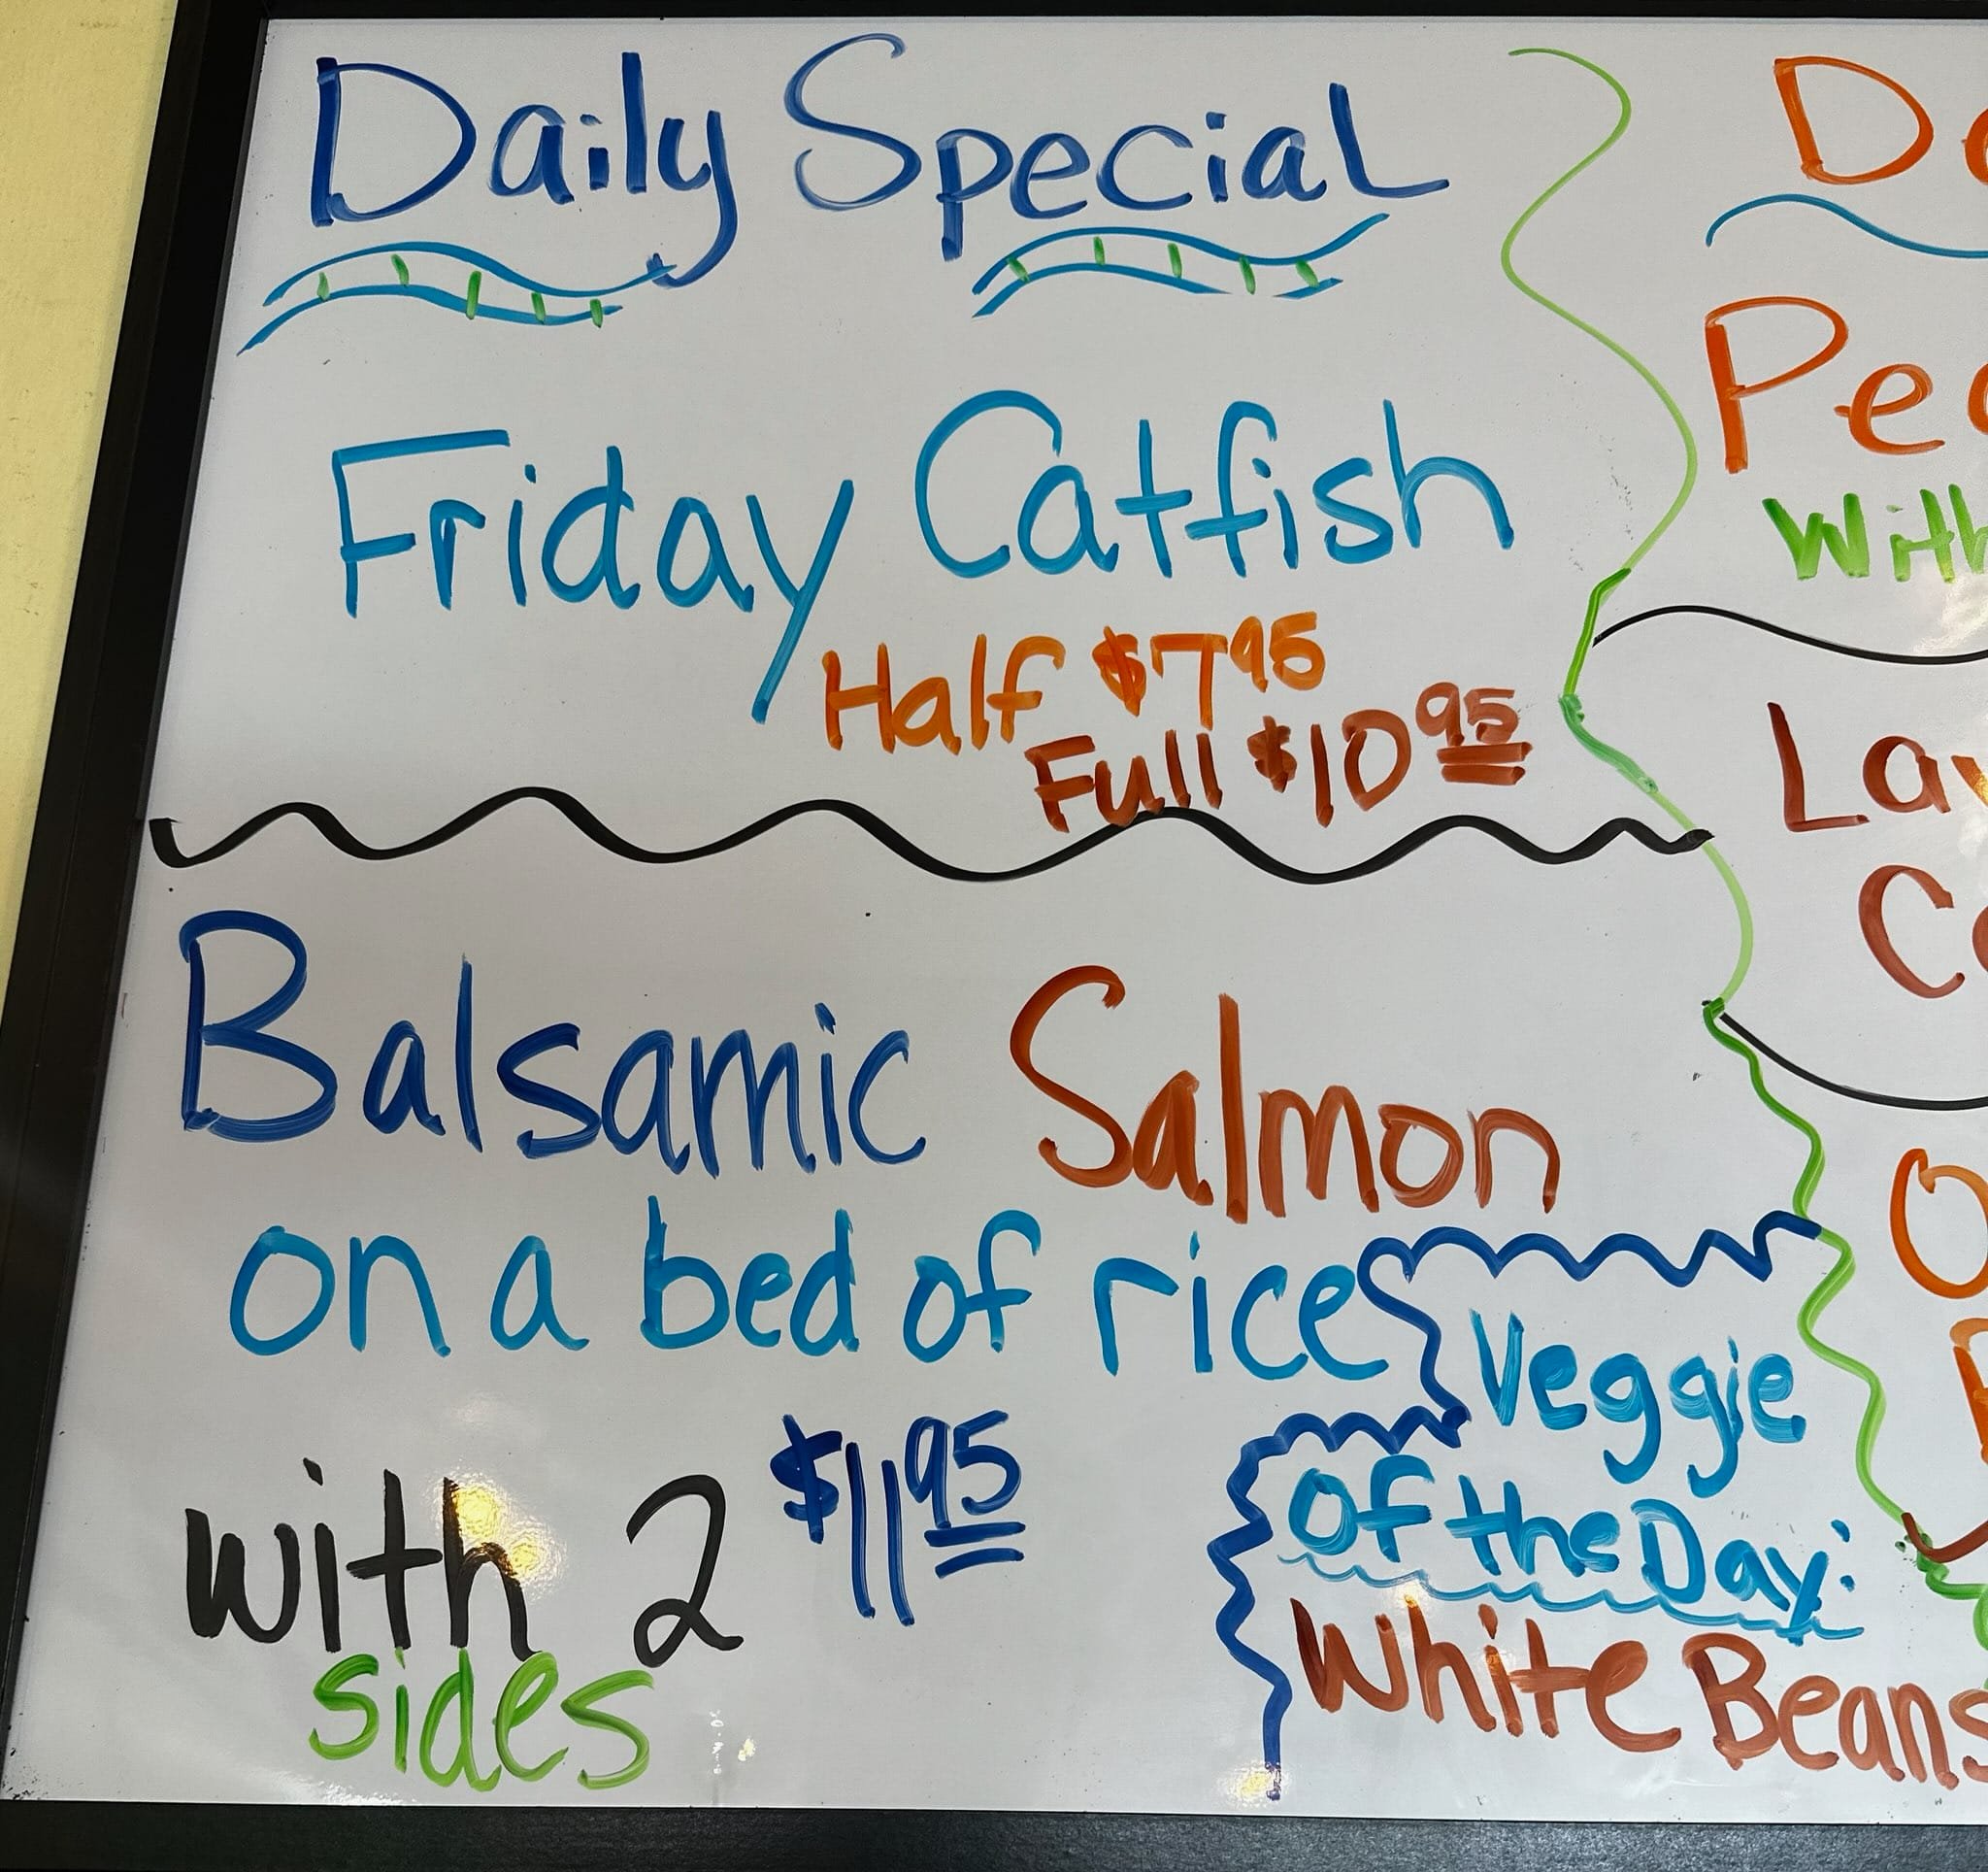 Daily Special
Friday Catfish
Half $7.95
Full $10.95
Balsamic Salmon
on a bed of rice
with 2 $11.95
sides
Veggie
Of the Day:
White Beans
With